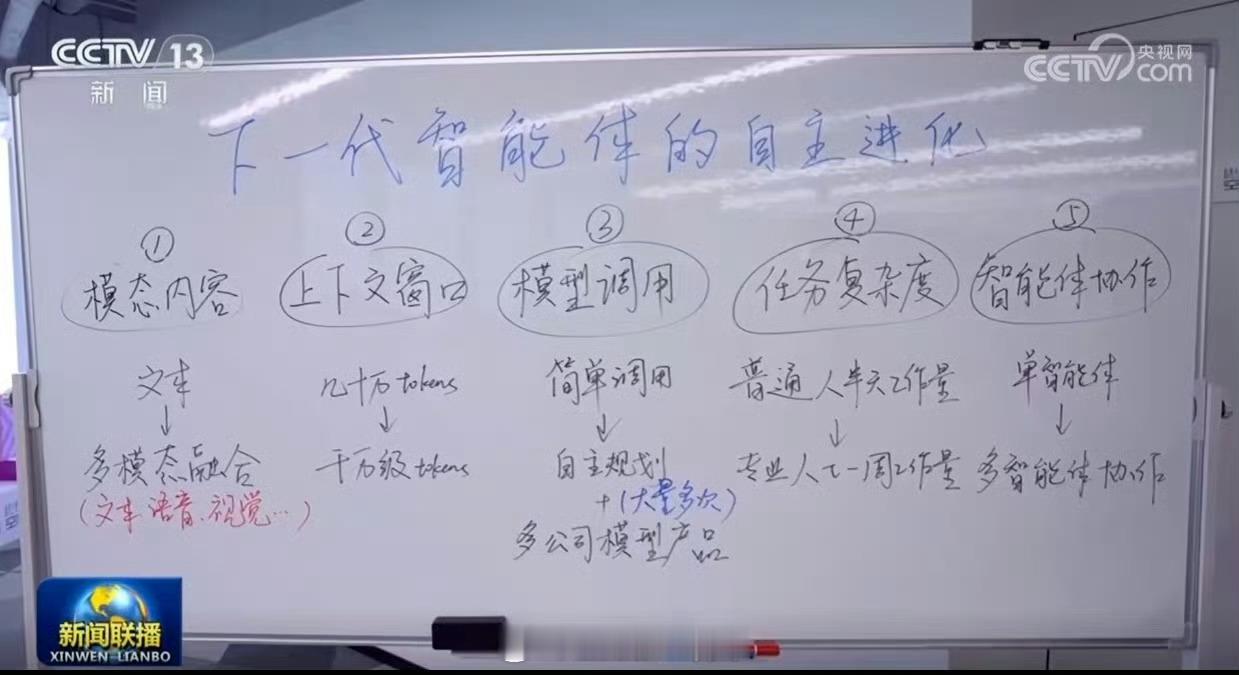 CCTV 13
新闻
央视网
CCTV.com
下一代智能体的自主进化
① ② ③ ④ ⑤
模态内容 上下文窗口 模型调用 任务复杂度 智能体协作
文本 几十万tokens 简单调用 普通人半天工作量 单智能体
↓ ↓ ↓ ↓ ↓
多模态融合 千万级tokens 自主规划 专业人士一周工作量 多智能体协作
(文本.语音.视觉…) +(大量多次)
多公司模型产品
新闻联播
XINWEN-LIANBO